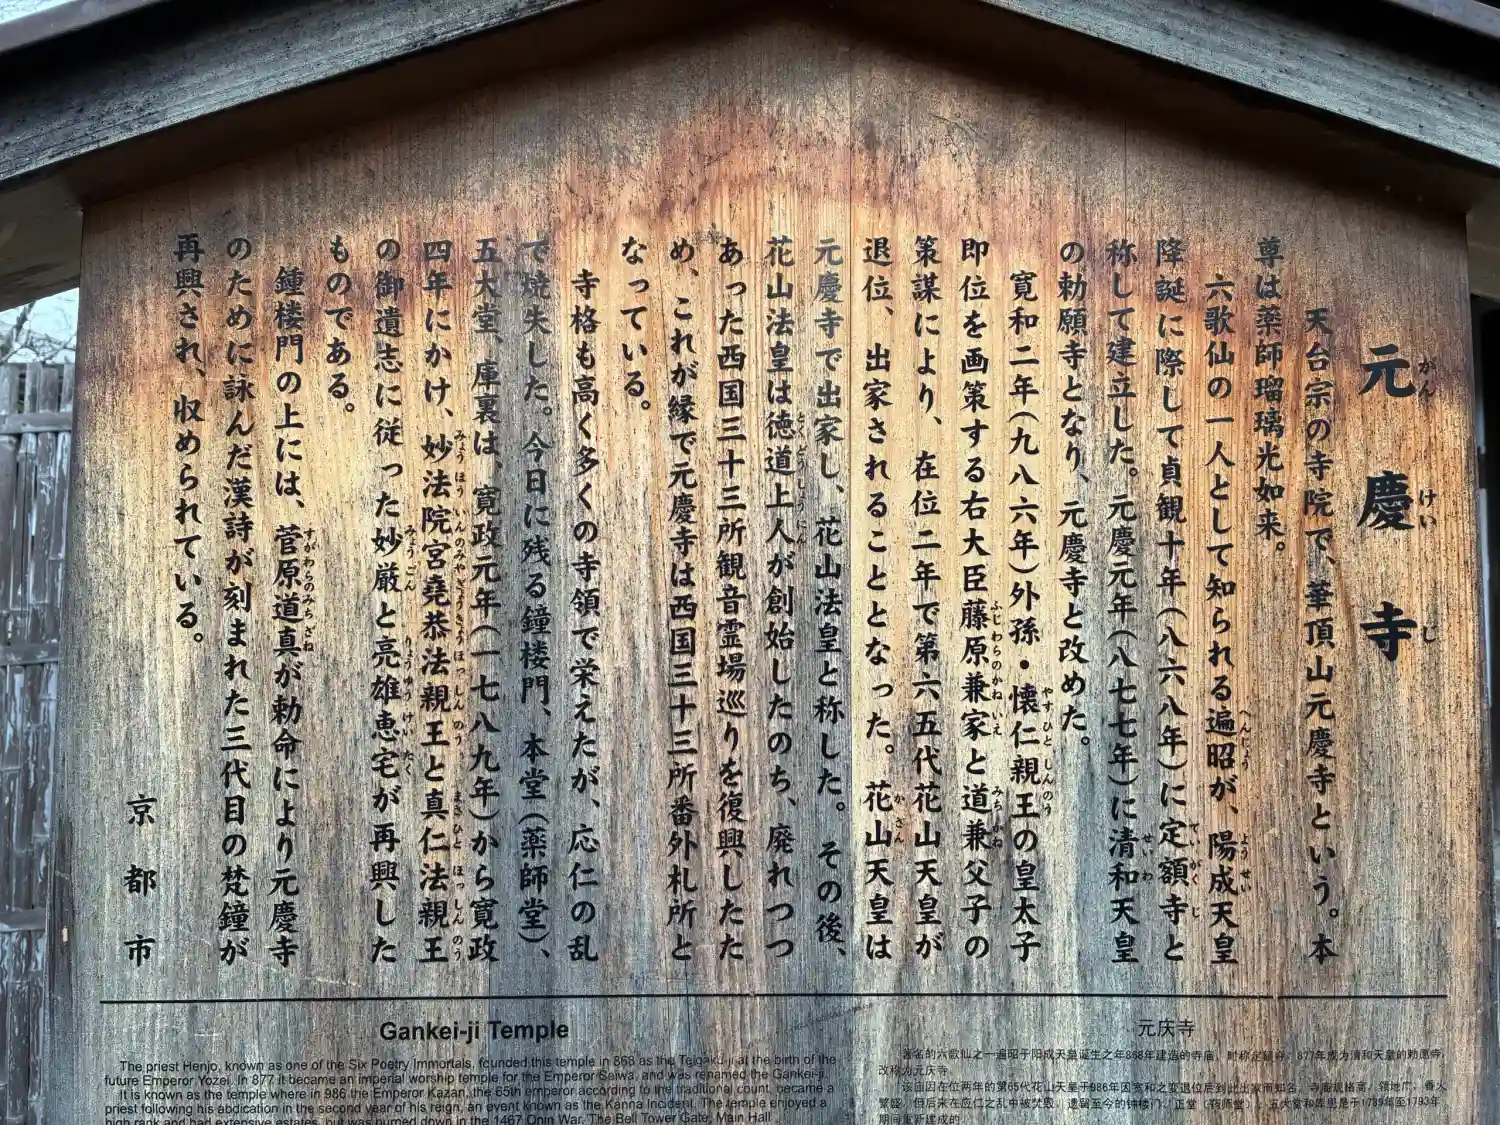 元慶寺
天台宗の寺院で、華頂山元慶寺という。本
尊は薬師瑠璃光如来。
六歌仙の一人として知られる遍昭が、陽成天皇
降誕に際して貞観十年（八六八年）に定額寺と
称して建立した。元慶元年（八七七年）に清和天皇
の勅願寺となり、元慶寺と改めた。
寛和二年（九八六年）外孫・懐仁親王の皇太子
即位を画策する右大臣藤原兼家と道兼父子の
策謀により、在位二年で第六五代花山天皇が
退位、出家されることとなった。花山天皇は
元慶寺で出家し、花山法皇と称した。その後、
花山法皇は徳道上人が創始したのち、廃れつつ
あった西国三十三所観音霊場巡りを復興したた
め、これが縁で元慶寺は西国三十三所番外札所と
なっている。
寺格も高く多くの寺領で栄えたが、応仁の乱
で焼失した。今日に残る鐘楼門、本堂（薬師堂）、
五大堂、庫裏は、寛政元年（一七八九年）から寛政
四年にかけ、妙法院宮堯恭法親王と真仁法親王
の御遺志に従った妙厳と亮雄恵宅が再興した
ものである。
鐘楼門の上には、菅原道真が勅命により元慶寺
のために詠んだ漢詩が刻まれた三代目の梵鐘が
再興され、収められている。
京都市
Gankei-ji Temple
The priest Henjo, known as one of the Six Poetry Immortals, founded this temple in 868 as the Teigaku-ji at the birth of the
future Emperor Yozei. In 877 it became an imperial worship temple for the Emperor Seiwa, and was renamed the Gankei-ji.
It is known as the temple where in 986 the Emperor Kazan, the 65th emperor according to the traditional count, became a
priest following his abdication in the second year of his reign, an event known as the Kanna Incident. The temple enjoyed a
high rank and had extensive estates, but was burned down in the 1467 Onin War. The Bell Tower Gate, Main Hall
元庆寺
著名的六歌仙之一遍昭于阳成天皇诞生之年868年建造的寺庙，时称定额寺。877年成为清和天皇的勅愿寺，
改称为元庆寺
该庙因在位两年的第65代花山天皇于986年因宽和之变退位后到此出家而知名。寺庙规格高，领地广，香火
繁盛，但后来在应仁之乱中被焚毁。遗留至今的钟楼门、正堂（药师堂）、五大堂和库里是于1789年至1793年
期间重新建成的。